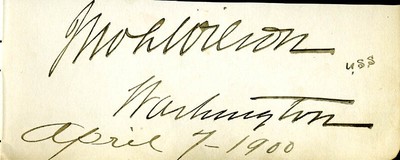 Jno L Wilson
USS
Washington
April 7 - 1900